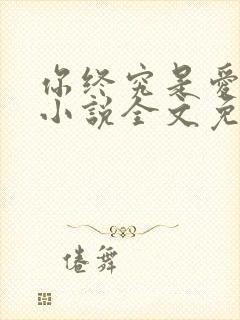 你终究是爱
小说全文免
倦舞